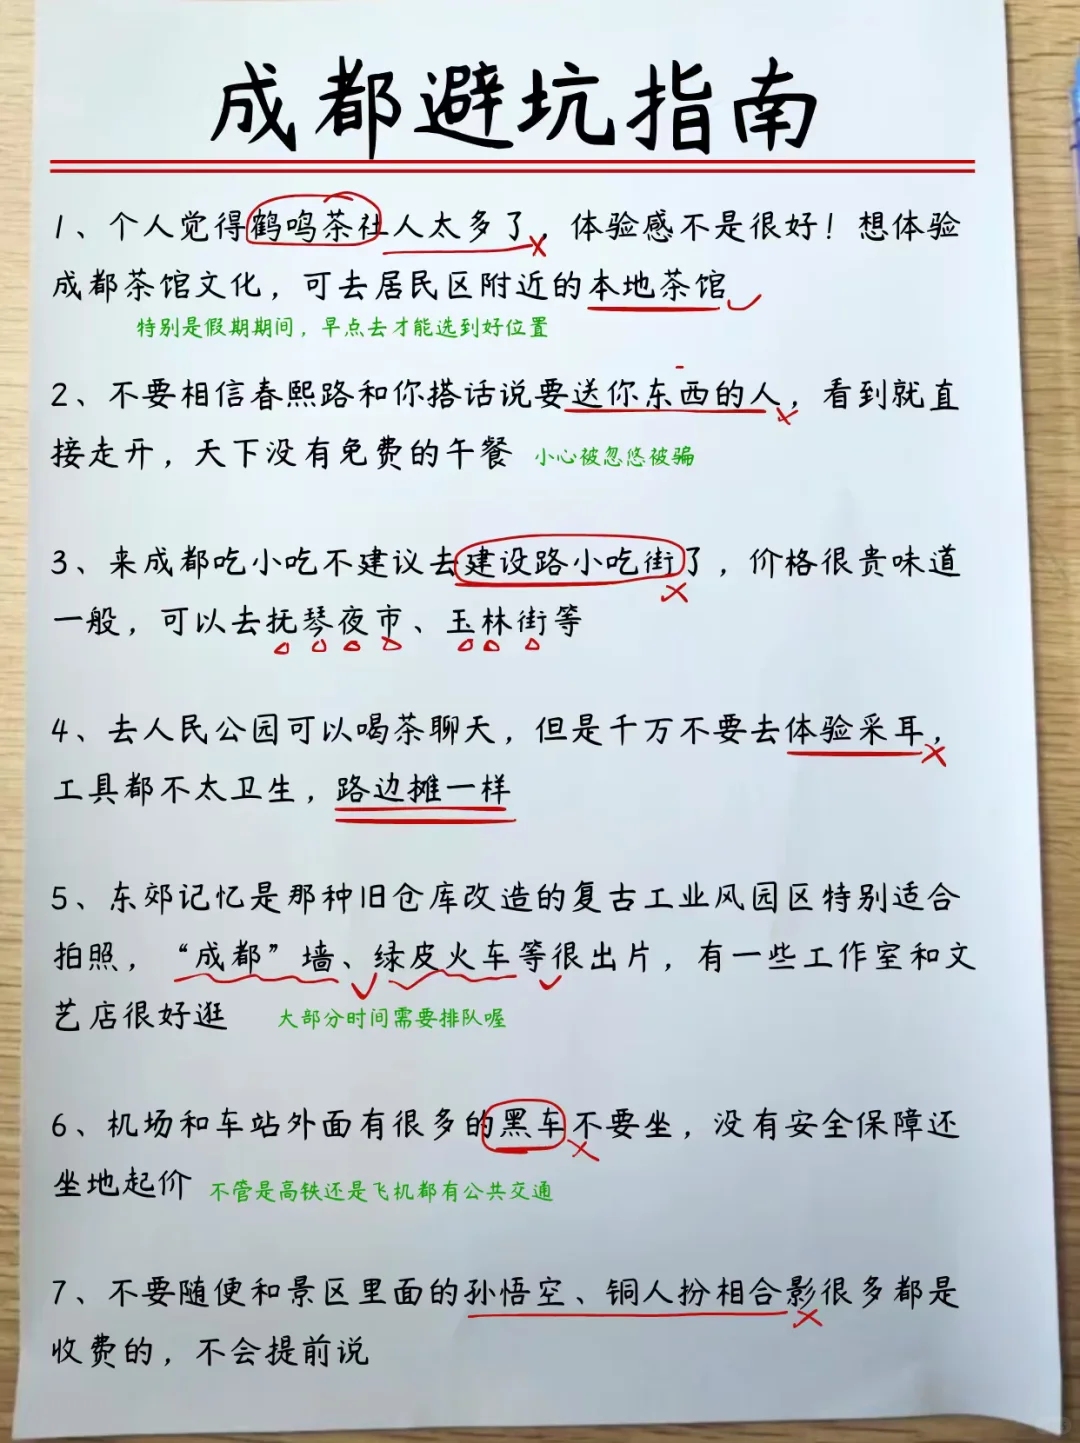 成都避坑指南
1、个人觉得鹤鸣茶社人太多了，体验感不是很好！想体验
成都茶馆文化，可去居民区附近的本地茶馆
特别是假期期间，早点去才能选到好位置
2、不要相信春熙路和你搭话说要送你东西的人，看到就直
接走开，天下没有免费的午餐 小心被忽悠被骗
3、来成都吃小吃不建议去建设路小吃街了，价格很贵味道
一般，可以去抚琴夜市、玉林街等
4、去人民公园可以喝茶聊天，但是千万不要去体验采耳，
工具都不太卫生，路边摊一样
5、东郊记忆是那种旧仓库改造的复古工业风园区特别适合
拍照，“成都”墙、绿皮火车等很出片，有一些工作室和文
艺店很好逛 大部分时间需要排队喔
6、机场和车站外面有很多的黑车不要坐，没有安全保障还
坐地起价 不管是高铁还是飞机都有公共交通
7、不要随便和景区里面的孙悟空、铜人扮相合影很多都是
收费的，不会提前说